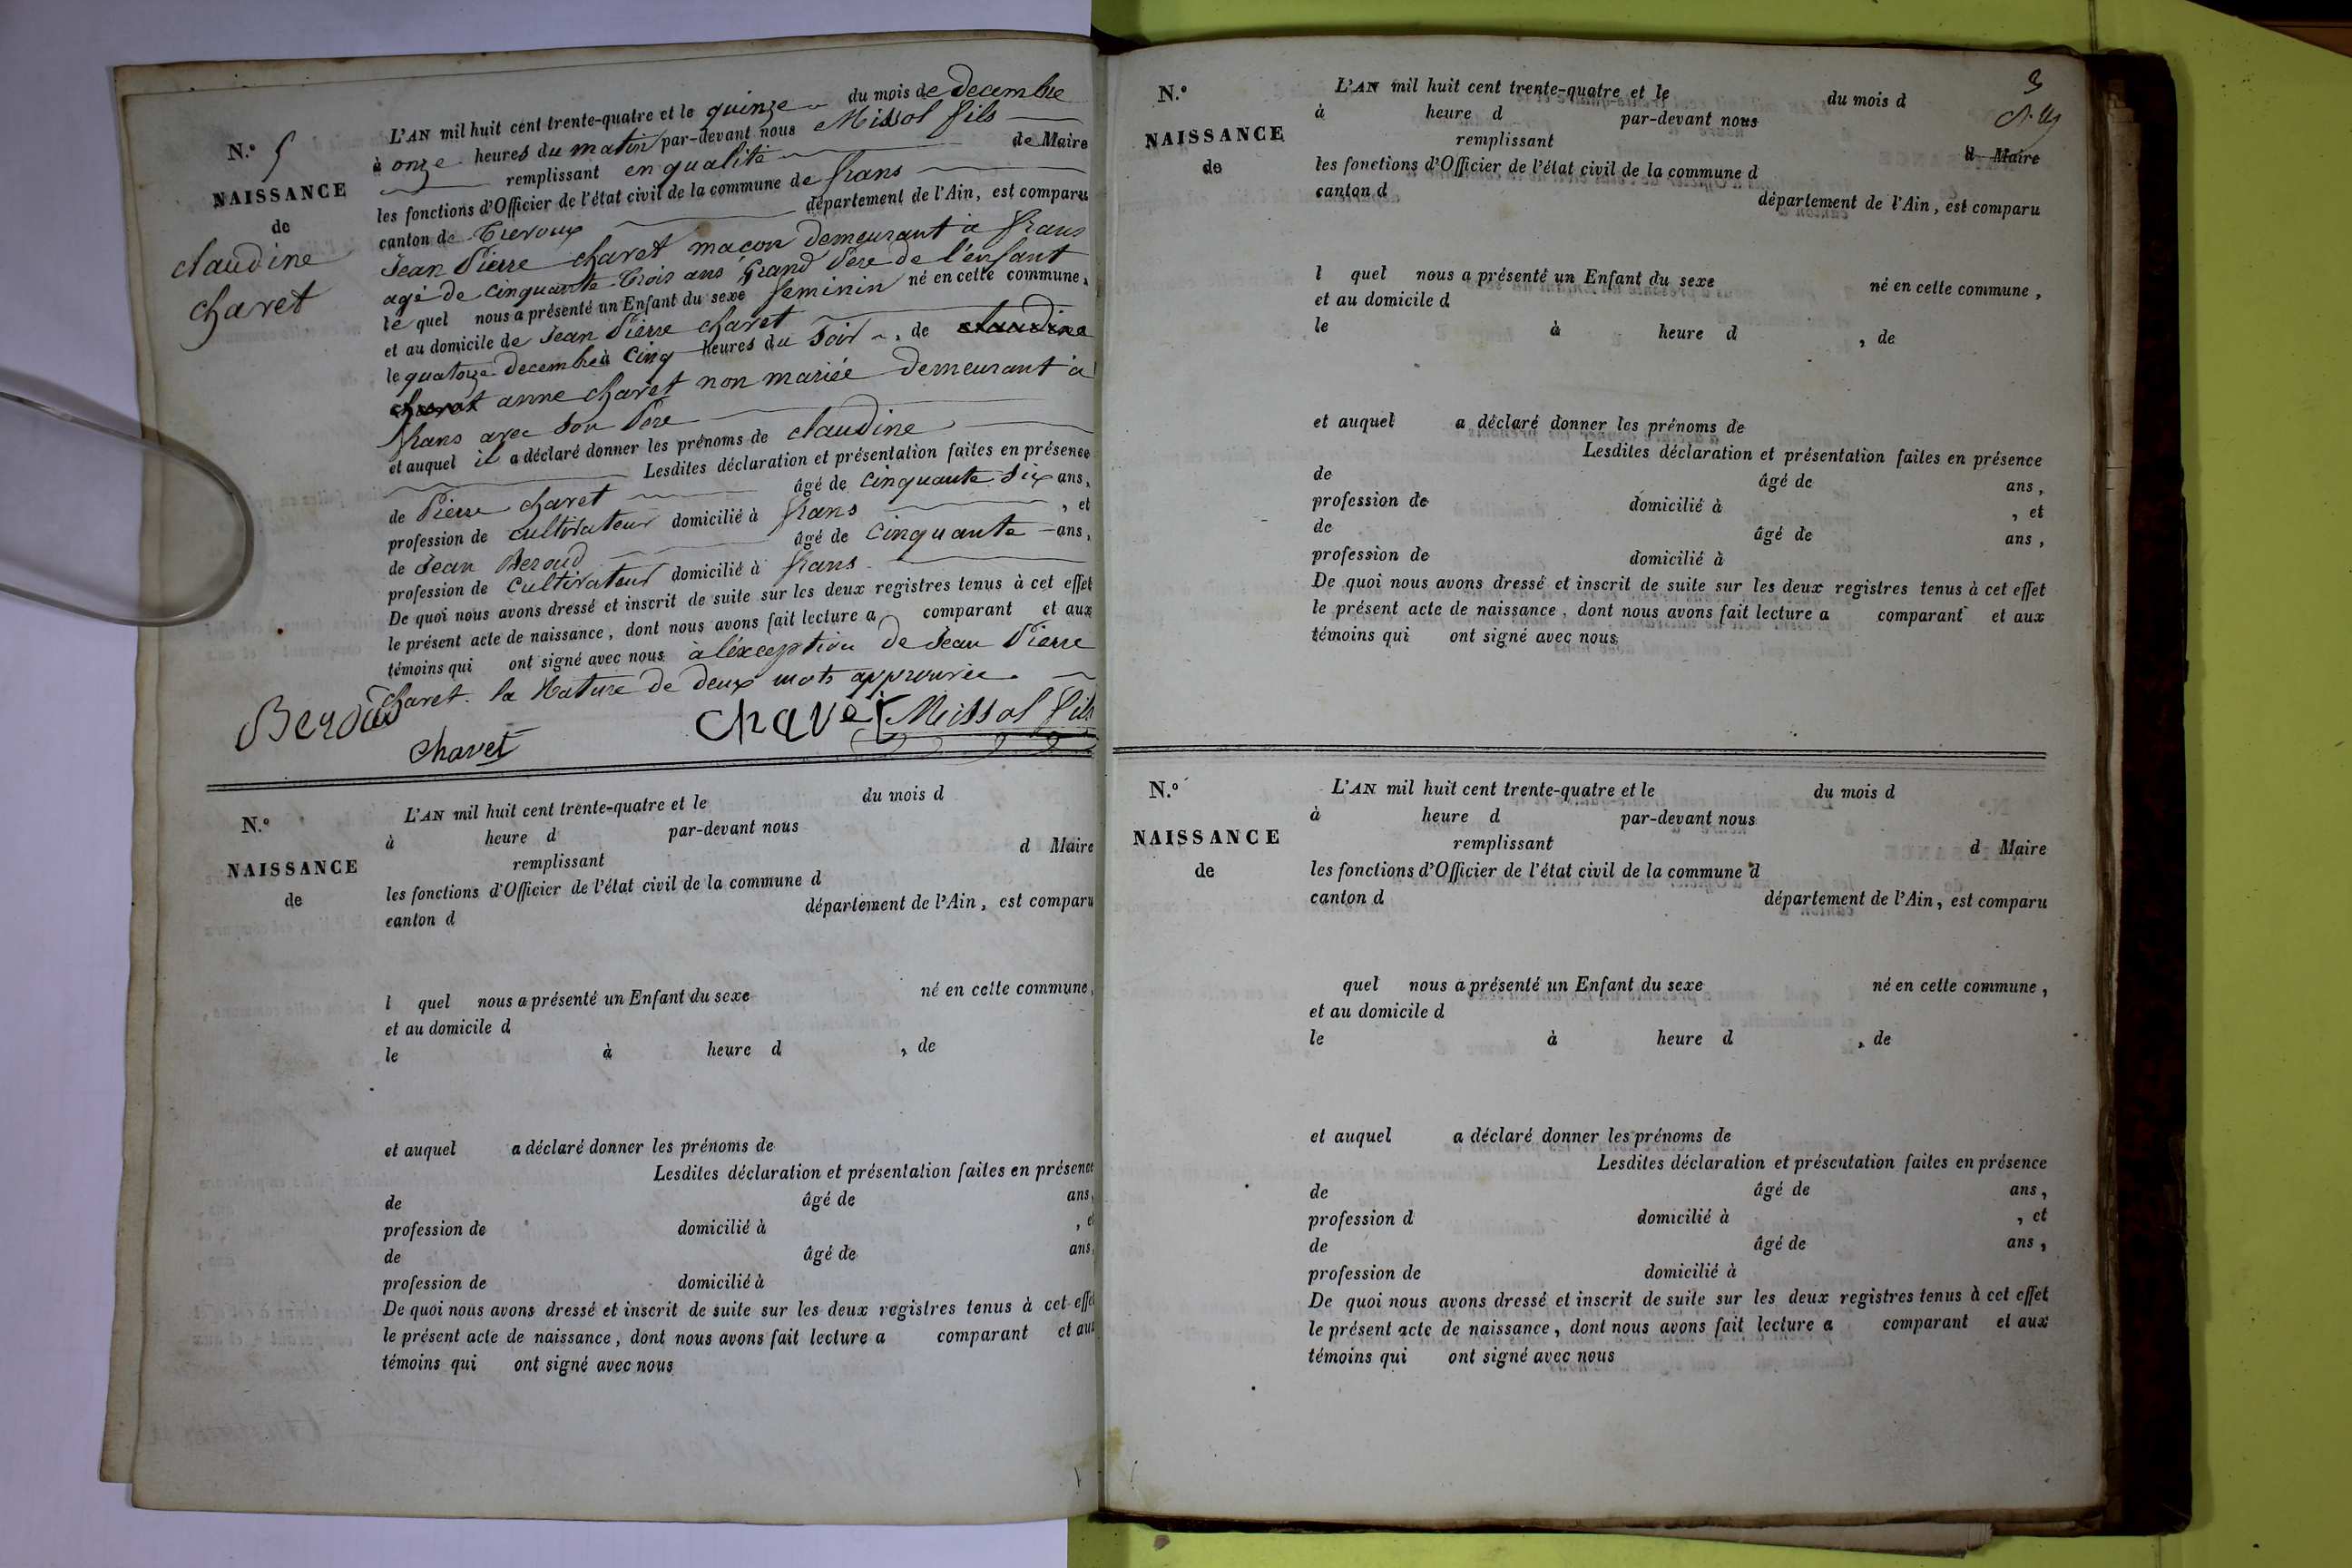 N.º 5
NAISSANCE
de
claudine
chavet
L'AN mil huit cent trente-quatre et le quinze du mois de decembre
à onze heures du matin par-devant nous Missol fils
remplissant en qualité de Maire
les fonctions d'Officier de l'état civil de la commune de frans
canton de Trevoux département de l'Ain, est comparu
Jean Pierre chavet maçon demeurant à frans
agé de cinquante trois ans grand Pere de l'enfant
le quel nous a présenté un Enfant du sexe feminin né en cette commune,
et au domicile de Jean Pierre chavet
le quatorze decembre à cinq heures du soir, de claudine
chavet anne chavet non mariée demeurant à
frans avec son Pere
et auquel il a déclaré donner les prénoms de claudine
Lesdites déclaration et présentation faites en présence
de Pierre chavet âgé de cinquante six ans,
profession de cultivateur domicilié à frans, et
de Jean Beroud âgé de cinquante ans,
profession de cultivateur domicilié à frans
De quoi nous avons dressé et inscrit de suite sur les deux registres tenus à cet effet
le présent acte de naissance, dont nous avons fait lecture a comparant et aux
témoins qui ont signé avec nous a léxception de Jean Pierre
chavet. la Rature de deux mots approuvée
Beroud
chavet
chavet
Missol fils
N.º
NAISSANCE
de
L'AN mil huit cent trente-quatre et le du mois d
à heure d par-devant nous
remplissant d Maire
les fonctions d'Officier de l'état civil de la commune d
canton d département de l'Ain, est comparu
l quel nous a présenté un Enfant du sexe né en cette commune,
et au domicile d
le à heure d , de
et auquel a déclaré donner les prénoms de
Lesdites déclaration et présentation faites en présence
de âgé de ans,
profession de domicilié à , et
de âgé de ans,
profession de domicilié à
De quoi nous avons dressé et inscrit de suite sur les deux registres tenus à cet effet
le présent acte de naissance, dont nous avons fait lecture a comparant et aux
témoins qui ont signé avec nous
3
N.º
NAISSANCE
de
L'AN mil huit cent trente-quatre et le du mois d
à heure d par-devant nous
remplissant d Maire
les fonctions d'Officier de l'état civil de la commune d
canton d département de l'Ain, est comparu
l quel nous a présenté un Enfant du sexe né en cette commune,
et au domicile d
le à heure d , de
et auquel a déclaré donner les prénoms de
Lesdites déclaration et présentation faites en présence
de âgé de ans,
profession de domicilié à , et
de âgé de ans,
profession de domicilié à
De quoi nous avons dressé et inscrit de suite sur les deux registres tenus à cet effet
le présent acte de naissance, dont nous avons fait lecture a comparant et aux
témoins qui ont signé avec nous
N.º
NAISSANCE
de
L'AN mil huit cent trente-quatre et le du mois d
à heure d par-devant nous
remplissant d Maire
les fonctions d'Officier de l'état civil de la commune d
canton d département de l'Ain, est comparu
quel nous a présenté un Enfant du sexe né en cette commune,
et au domicile d
le à heure d , de
et auquel a déclaré donner les prénoms de
Lesdites déclaration et présentation faites en présence
de âgé de ans,
profession d domicilié à , et
de âgé de ans,
profession de domicilié à
De quoi nous avons dressé et inscrit de suite sur les deux registres tenus à cet effet
le présent acte de naissance, dont nous avons fait lecture a comparant et aux
témoins qui ont signé avec nous